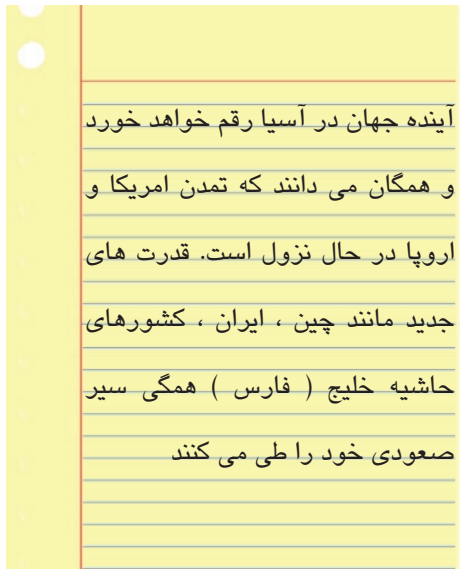 آینده جهان در آسیا رقم خواهد خورد
و همگان می دانند که تمدن امریکا و
اروپا در حال نزول است. قدرت های
جدید مانند چین ، ایران ، کشورهای
حاشیه خلیج ( فارس ) همگی سیر
صعودی خود را طی می کنند